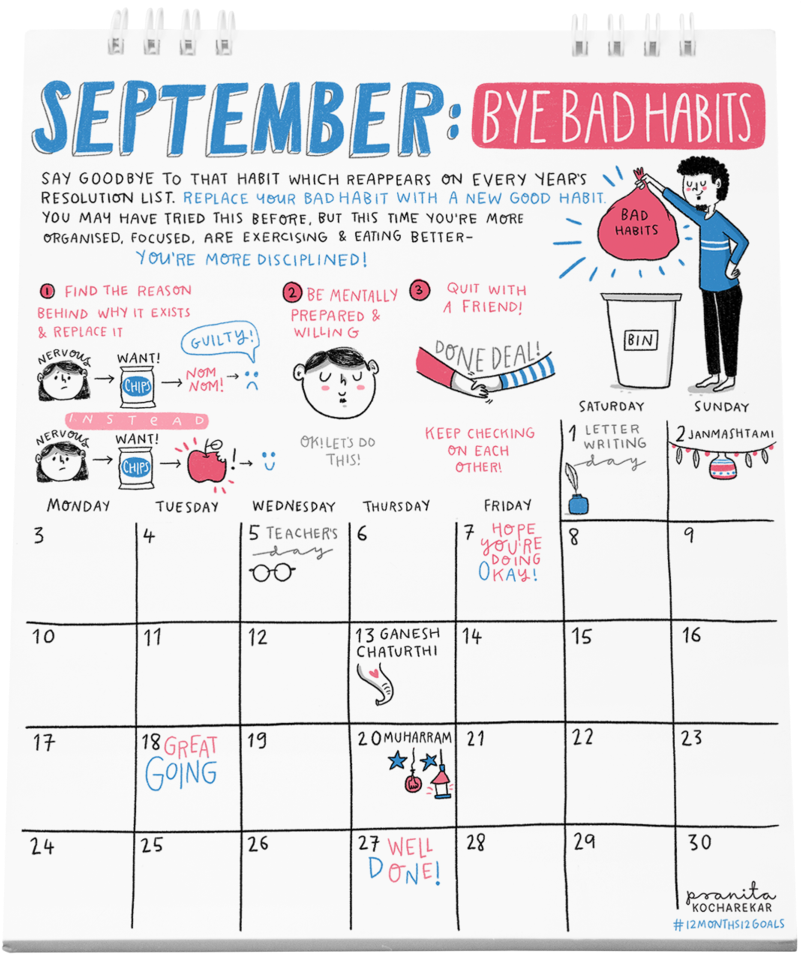 SEPTEMBER: BYE BAD HABITS
SAY GOODBYE TO THAT HABIT WHICH REAPPEARS ON EVERY YEAR'S
RESOLUTION LIST. REPLACE YOUR BAD HABIT WITH A NEW GOOD HABIT.
YOU MAY HAVE TRIED THIS BEFORE, BUT THIS TIME YOU'RE MORE
ORGANISED, FOCUSED, ARE EXERCISING & EATING BETTER-
YOU'RE MORE DISCIPLINED!
BAD
HABITS
BIN
1 FIND THE REASON
BEHIND WHY IT EXISTS
& REPLACE IT
GUILTY!
NERVOUS
WANT!
CHIPS
NOM
NOM!
INSTEAD
NERVOUS
WANT!
CHIPS
!
2 BE MENTALLY
PREPARED &
WILLING
OK! LETS DO
THIS!
3 QUIT WITH
A FRIEND!
DONE DEAL!
KEEP CHECKING
ON EACH
OTHER!
MONDAY TUESDAY WEDNESDAY THURSDAY FRIDAY SATURDAY SUNDAY
1 LETTER
WRITING
day
2 JANMASHTAMI
3
4
5 TEACHER'S
day
6
7 HOPE
YOU'RE
DOING
OKAY!
8
9
10
11
12
13 GANESH
CHATURTHI
14
15
16
17
18 GREAT
GOING
19
20 MUHARRAM
21
22
23
24
25
26
27 WELL
DONE!
28
29
30
pranita
KOCHAREKAR
#12MONTHS12GOALS